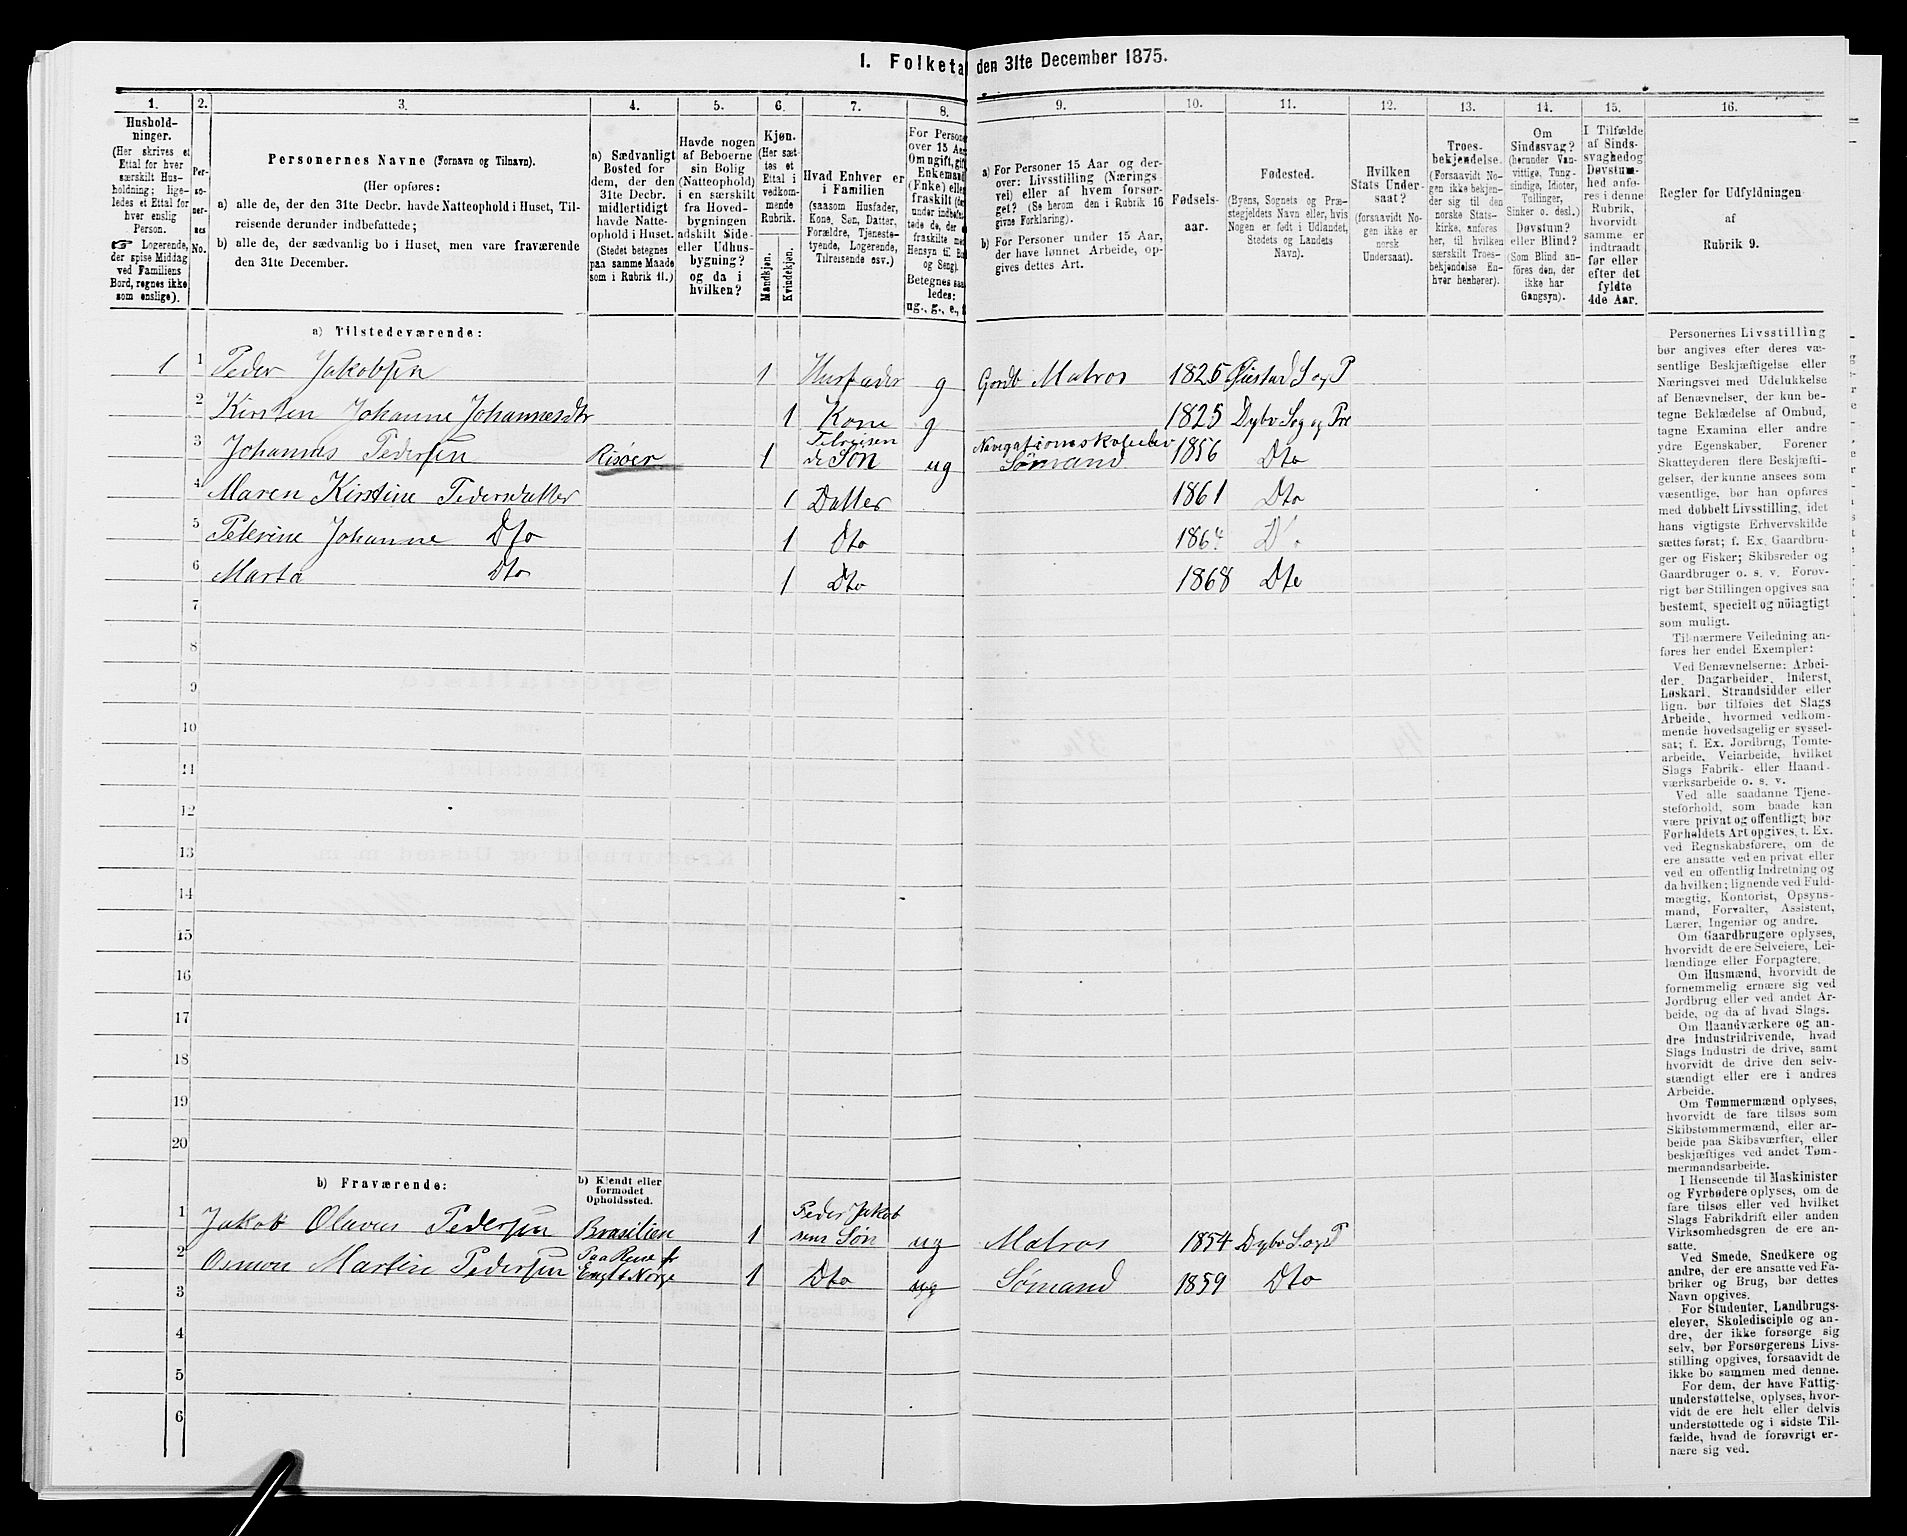 1. Folketal den 31te December 1875.
1. 2. 3. 4. 5. 6. 7. 8. 9. 10. 11. 12. 13. 14. 15. 16.
Hushold-
ninger.
(Her skrives et
Ettal for hver
særskilt Hus-
holdning; lige-
ledes et Ettal for
hver enslig
Person.
☞ Logerende,
der spise Middag
ved Familiens
Bord, regnes ikke
som enslige).
Per-
so-
ner-
nes
No.
Personernes Navne (Fornavn og Tilnavn).
(Her opføres:
a) alle de, der den 31te Decbr. havde Natteophold i Huset, Til-
reisende derunder indbefattede;
b) alle de, der sædvanlig bo i Huset, men vare fraværende
den 31te December.
a) Sædvanligt
Bosted for
dem, der den
31te Decbr.
midlertidigt
havde Natte-
ophold i Huset.
(Stedet betegnes
paa samme Maade
som i Rubrik 11.)
Havde nogen
af Beboerne
sin Bolig
(Natteophold)
i en særskilt
fra Hoved-
bygningen
adskilt Side-
eller Udhus-
bygning?
og da i
hvilken?
Kjøn.
(Her sæt
tes et
Ettal i
vedkom-
mende
Rubrik.
Mandkjøn.
Kvindekjøn.
Hvad Enhver er
i Familien
(saasom Husfader,
Kone, Søn, Datter,
Forældre, Tjeneste-
tyende, Logerende,
Tilreisende osv.)
For Persone
over 15 Aar
Om ugift, gift
Enkemand
(Enke) elle
fraskilt
under indbefat
tede de, der
fraskilte
Hensyn til Bo
og Seng).
Betegnes saa
ledes:
ug., g., e., f
a) For Personer 15 Aar og der-
over: Livsstilling (Nærings
vei) eller af hvem forsør-
get? (Se herom den i Rubrik 16
givne Forklaring).
b) For Personer under 15 Aar,
der have lønnet Arbeide, op-
gives dettes Art.
Fødsels-
aar.
Fødested.
(Byens, Sognets og Præ-
stegjeldets Navn eller, hvis
Nogen er født i Udlandet,
Stedets og Landets
Navn).
Hvilken
Stats Under-
saat?
(forsaavidt No-
gen ikke er
norsk
Undersaat).
Troes-
bekjendelse.
(Forsaavidt No-
gen ikke bekjen-
der sig til den
norske Stats-
kirke, anføres
her, til hvilken
særskilt Troes-
bekjendelse En-
hver henhører).
Om
Sindssvag?
(herunder Van-
vittige, Tung-
sindige, Idioter,
Tullinger,
Sinker o. desl.)
Døvstum?
eller Blind?
(Som Blind an-
føres den, der
ikke har
Gangsyn).
I Tilfælde
af Sinds-
svaghedog
Døvstum-
hed anfø-
res i denne
Rubrik,
hvorvidt
samme er
indtraadt
før eller
efter det
fyldte
4de Aar.
Regler for Udfyldningen
af
Rubrik 9.
a) Tilstedeværende:
1 1 Peder Jakobsen 1 Husfader g Gaardb Matros 1825 Øiestad S og P
2 Kirsten Johanne Johannesdtr 1 Kone g 1825 Dybv Sog og Pre
3 Johannes Pedersen Risøer 1 Tilreisen
de Søn ug Navigationsskoleelev
Sømand 1856 Dto
4 Maren Kirstine Pedersdatter 1 Datter 1861 Dto
5 Peterine Johanne Dto 1 Dto 1864 D'.
6 Marta Dto 1 Dto 1868 Dto
7
8
9
10
11
12
13
14
15
16
17
18
19
20
b) Fraværende:
b) Kjendt eller
formodet
Opholdssted.
1 Jakob Olavus Pedersen Brasilien 1 Peder Jakob
sens Søn ug Matros 1854 Dybv S og P
2 Osmon Martin Pedersen Paa Reise fr
Engl t Norge 1 Dto ug Sømand 1859 Dto
3
4
5
6
Personernes Livsstilling
bør angives efter deres væ-
sentlige Beskjæftigelse eller
Næringsvei med Udelukkelse
af Benævnelser, der kun be-
tegne Beklædelse af Ombud,
tagne Examina eller andre
ydre Egenskaber. Forener
Skatteyderen flere Beskjæfti-
gelser, der kunne ansees som
væsentlige, bør han opføres
med dobbelt Livsstilling, idet
hans vigtigste Erhvervskilde
sættes først; f. Ex. Gaardbru-
ger og Fisker; Skibsreder og
Gaardbruger o. s. v. Forøv-
rigt bør Stillingen opgives saa
bestemt, specielt og nøiagtigt
som muligt.
Til nærmere Veiledning an-
føres her endel Exempler:
Ved Benævnelserne: Arbei-
der, Dagarbeider, Inderst,
Løskarl, Strandsidder eller
lign. bør tilføies det Slags
Arbeide, hvormed vedkom-
mende hovedsagelig er syssel-
sat; f. Ex. Jordbrug, Tomte-
arbeide, Veiarbeide, hvilket
Slags Fabrik- eller Haand-
værksarbeide o. s. v.
Ved alle saadanne Tjene-
steforhold, som baade kan
være privat og offentligt, bør
Forholdets Art opgives, t. Ex.
ved Regnskabsførere, om de
ere ansatte ved en privat eller
ved en offentlig Indretning og
da hvilken; lignende ved Fuld-
mægtig, Kontorist, Opsyns-
mand, Forvalter, Assistent,
Lærer, Ingeniør og andre.
Om Gaardbrugere oplyses,
hvorvidt de ere Selveiere, Lei-
lændinge eller Forpagtere.
Om Husmænd, hvorvidt de
fornemmelig ernære sig ved
Jordbrug eller ved andet Ar-
beide, og da af hvad Slags.
Om Haandværkere og an-
dre Industridrivende, hvad
Slags Industri de drive, samt
hvorvidt de drive den selv-
stændigt eller ere i andres
Arbeide.
Om Tømmermænd oplyses,
hvorvidt de fare tilsøs som
Skibstømmermænd, eller ar-
beide paa Skibsværfter, eller
beskjæftiges ved andet Tøm-
mermandsarbeide.
I Henseende til Maskinister
og Fyrbødere oplyses, om de
fare tilsøs eller ved hvilket
Slags Fabrikdrift eller anden
Virksomhedsgren de ere an-
satte.
Ved Smede, Snedkere og
andre, der ere ansatte ved Fa-
briker og Brug, bør dettes
Navn opgives.
For Studenter, Landbrugs-
elever, Skoledisciple og an-
dre, der ikke forsørge sig
selv, bør Forsørgerens Livs-
stilling opgives, forsaavidt de
ikke bo sammen med denne.
For dem, der have Fattig-
understøttelse, oplyses, hvor-
vidt de ere helt eller delvis
understøttede og i sidste Til-
fælde, hvad de forøvrigt er-
nære sig ved.